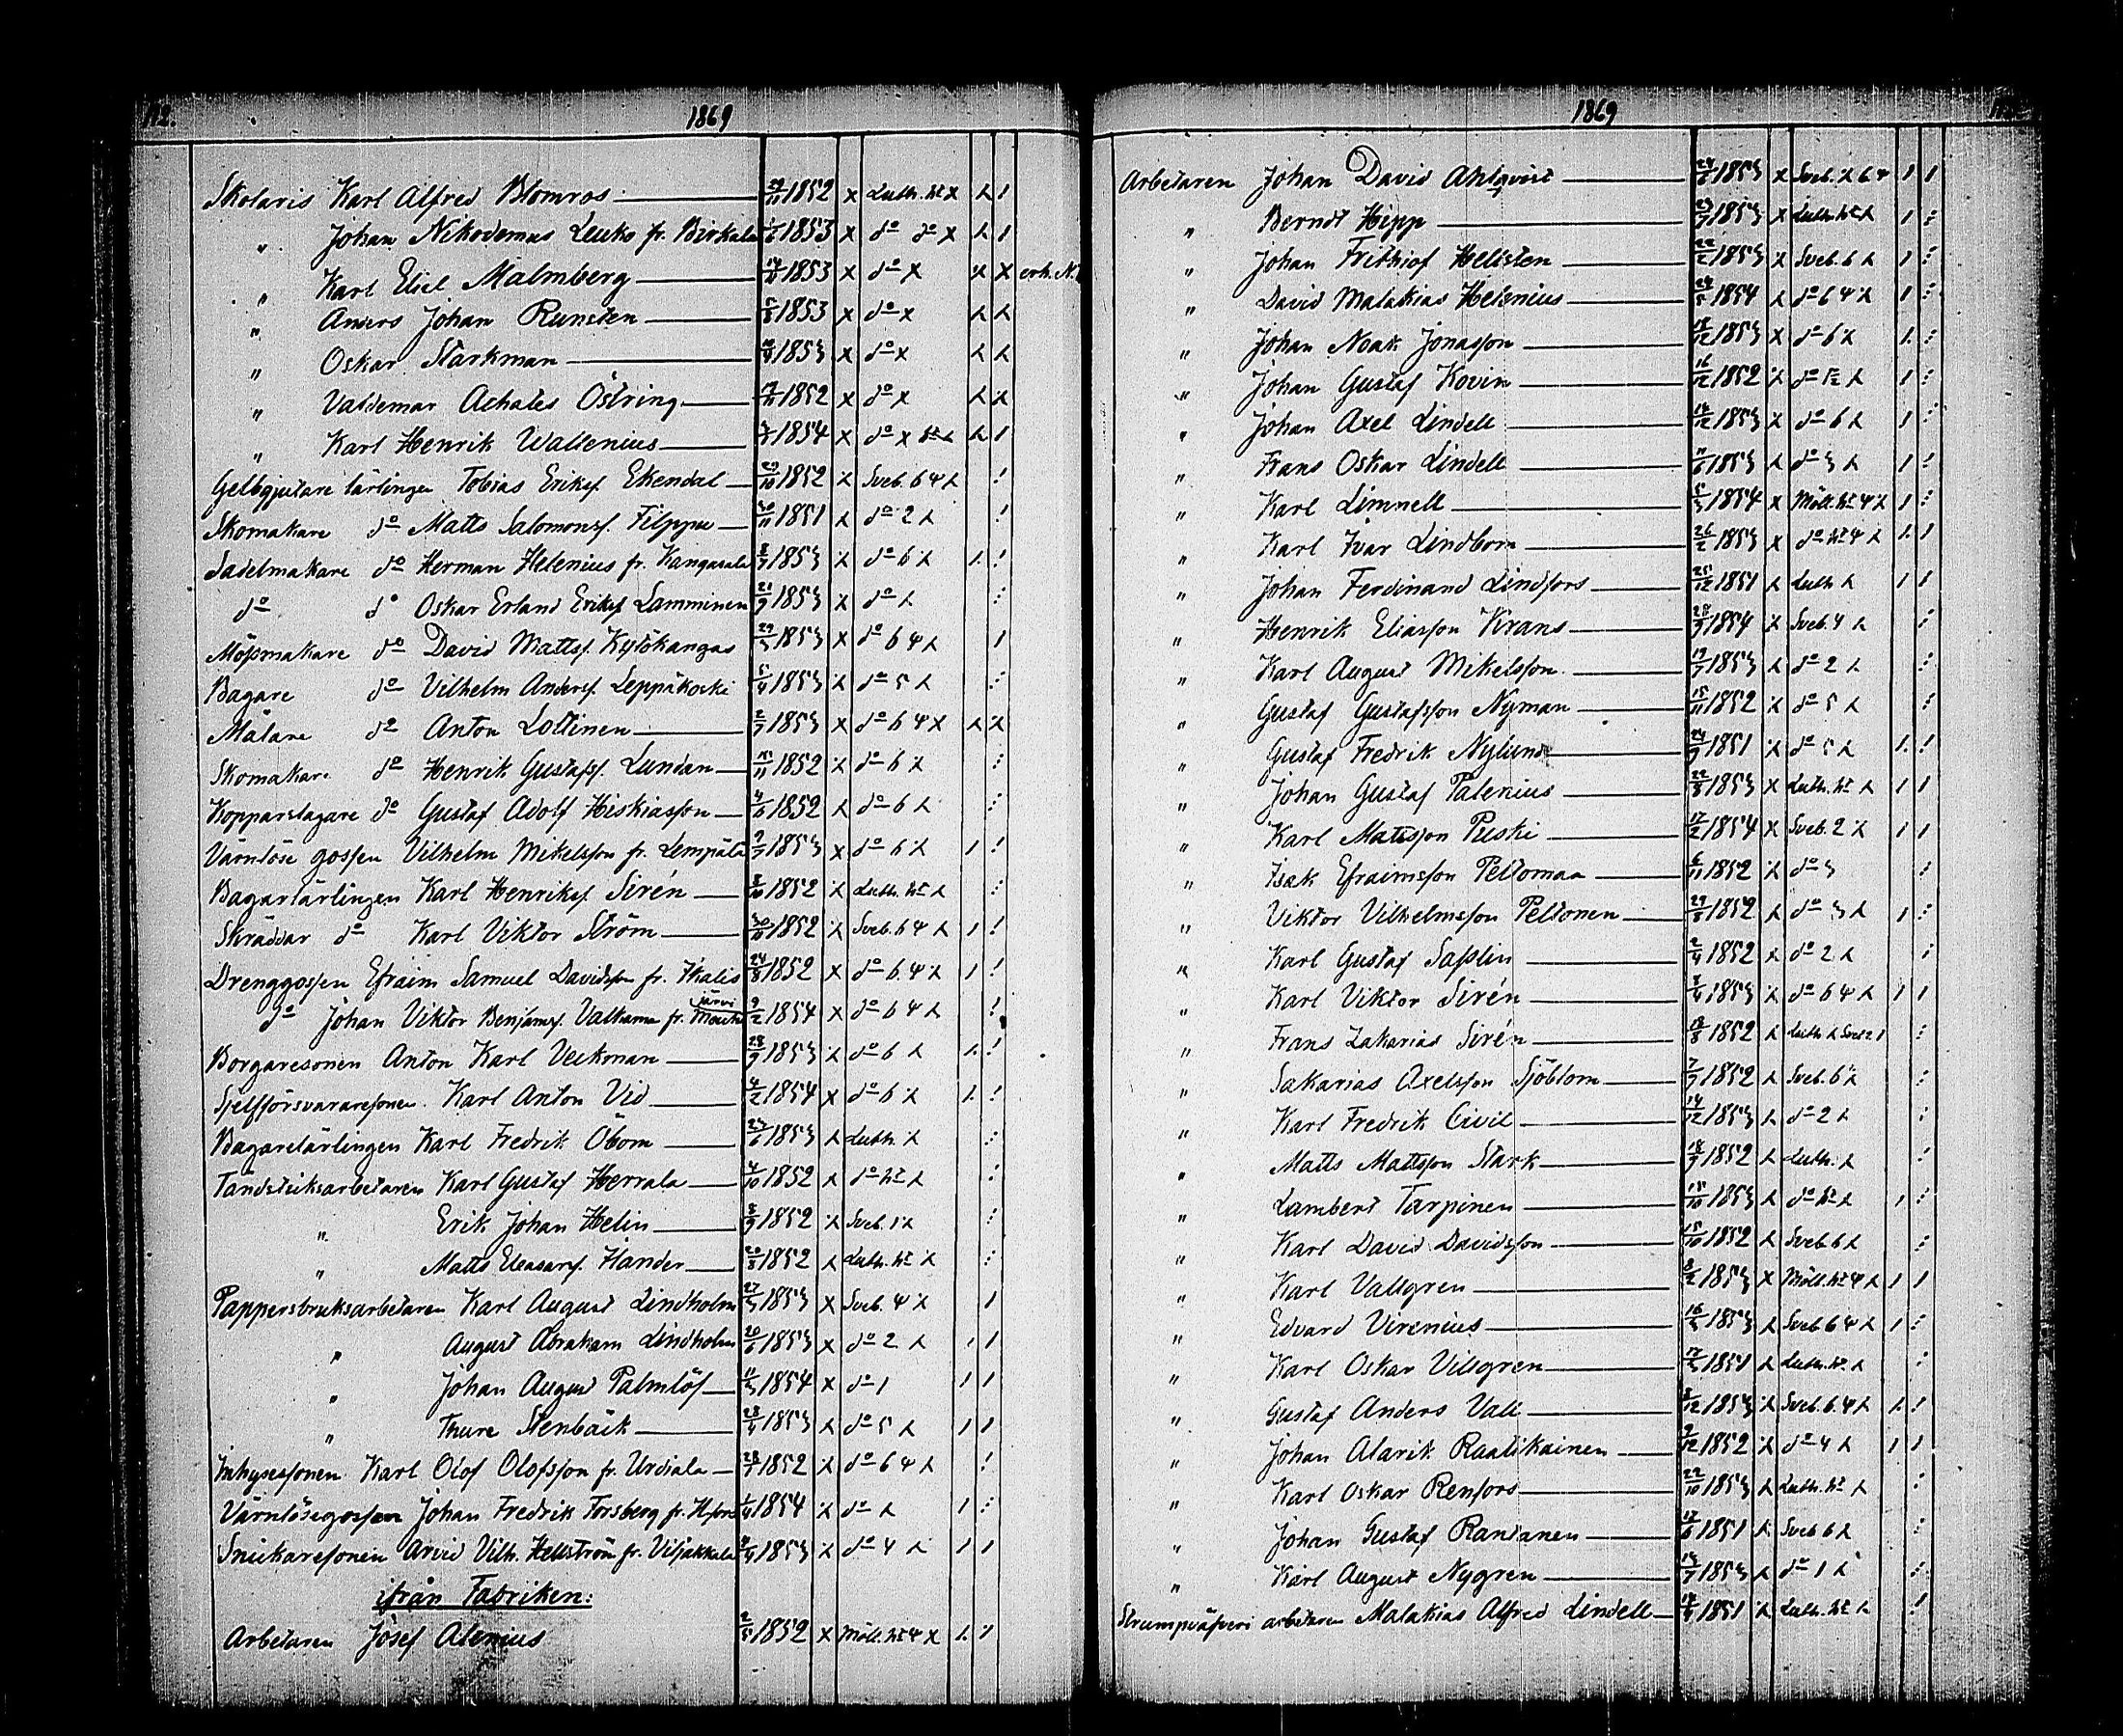 112.
1869
Skolaris Karl Alfred Blomros 29/11 1852 x Luth. ht x
" Johan Nikodemus Leuko fr. Birkala 1853 x do do x
" Karl Eliel Malmberg 1853 x do x
" Anders Johan Runsten 1853 x do x
" Oskar Starkman 1853 x do x
" Valdemar Achates Östring 1852 x do x
" Karl Henrik Wallenius 1854 x do x
Gelbgjutare lärlingen Tobias Eriksf. Ekendal 29/10 1852 Sveb. 6 4
Skomakare do Matts Salomonsf. Filppu 30/11 1851 do 2
Sadelmakare do Herman Helenius fr. Kangasala 1853 do 6
do do Oskar Erland Eriksf. Lamminen 21/9 1853 do
Mössmakare do David Mattsf. Kytökangas 29/3 1853 x do 6 4
Bagare do Vilhelm Andersf. Leppäkoski 5/4 1853 do 5
Målare do Anton Lottinen 1853 x do 6 4 x
Skomakare do Henrik Gustafsf. Lundan 1852 do 6
Kopparslagare do Gustaf Adolf Hiskiasson 4/6 1852 do 6
Värnlöse gossen Vilhelm Mikelsson fr. Lempälä 1853 x do 6
Bagarlärlingen Karl Henriksf. Sirén 1852 Luth. ht
Skräddar do Karl Viktor Ström 1852 Sveb. 6 4
Drenggossen Efraim Samuel Davidsson fr. Ikalis 24/8 1852 x do 6. 4
do Johan Viktor Benjamsf. Valkama fr. Mouhijärvi 9/2 1854 x do 6 4
Borgaresonen Anton Karl Veckman 28/9 1853 do 6
Sjelfförsvararesonen Karl Anton Vid 4/2 1854 x do 6
Bagarelärlingen Karl Fredrik Öbom 1853 Luth.
Tändsticksarbetaren Karl Gustaf Herrala 4/10 1852 do ht
" Erik Johan Helin 8/9 1852 Sveb. 1
" Matts Eleasarsf. Hander 20/8 1852 Luth. ht
Pappersbruksarbetaren Karl August Lindholm 27/3 1853 x Sveb. 4
" August Abraham Lindholm 20/6 1853 x do 2
" Johan August Palmlöf 1854 x do 1
" Thure Stenbäck 28/4 1853 do 5
Inhysessonen Karl Olof Olofsson fr. Urdiala 1852 do 6 4
Värnlösegossen Johan Fredrik Forsberg fr. H.fors 1854 do
Snickaresonen Arvid Vilh. Hellström fr. Viljakkala 1853 do 4
ifrån Fabriken:
Arbetaren Josef Alenius 1852 x Möll. ht 4 x
1869
Arbetaren Johan David Ahlqvist 1853 x Sveb. 6 4
" Berndt Hipp 1853 x Luth. ht
" Johan Frithiof Hellsten 1853 x Sveb. 6
" David Malakias Helenius 1854 do 6 4
" Johan Noak Jonasson 1853 x do 6
" Johan Gustaf Kovin 16/12 1852 do
" Johan Axel Lindell 1853 x do 6
" Frans Oskar Lindell 1853 do 3
" Karl Limnell 1854 x Möll. ht 4
" Karl Ivar Lindbom 26/2 1853 x do ht 4
" Johan Ferdinand Lindfors 25/12 1851 Luth
" Henrik Eliasson Krans 1854 Sveb. 4
" Karl August Mikelsson 19/7 1853 do 2
" Gustaf Gustafsson Nyman 15/11 1852 do 5
" Gustaf Fredrik Nylund 1851 do 5
" Johan Gustaf Palenius 1853 x Luth. ht
" Karl Mattsson Puski 1854 x Sveb. 2
" Isak Efraimsson Peltomaa 6/11 1852 do 3
" Viktor Vilhelmsson Peltonen 29/8 1852 do 3
" Karl Gustaf Sasslin 2/4 1852 do 2
" Karl Viktor Sirén 1853 do 6 4
" Frans Zakarias Sirén 18/8 1852 Luth Sveb
" Sakarias Axelsson Sjöblom 7/7 1852 Sveb. 6
" Karl Fredrik Civil 14/12 1853 do 2
" Matts Mattsson Stark 18/9 1852 Luth.
" Lambert Tarpinen 18/10 1853 do ht
" Karl David Davidsson 15/10 1852 Sveb 6
" Karl Vallgren 8/2 1853 x Möll. ht 4
" Edvard Virenius 16/3 1853 Sveb 6 4
" Karl Oskar Villgren 1851 Luth. ht
" Gustaf Anders Vall 1853 Sveb. 6. 4
" Johan Alarik Raatikainen 9/12 1852 do 4
" Karl Oskar Renfors 22/10 1853 Luth. ht
" Johan Gustaf Rantanen 1851 Sveb 6
" Karl August Nygren 1853 do 1
Strumpväfveri arbetaren Malakias Alfred Lindell 1851 Luth. ht